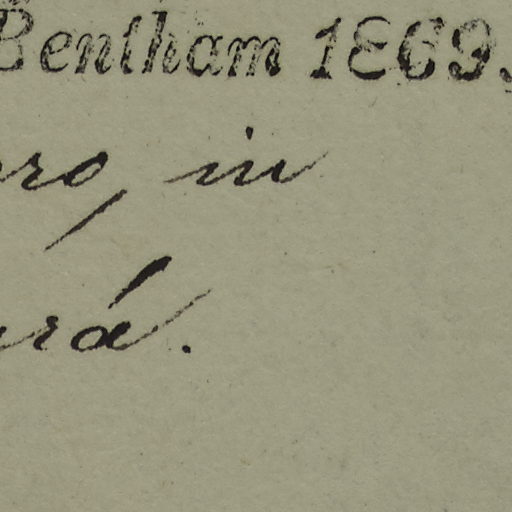 Bentham 1869.
ro, in
rá.